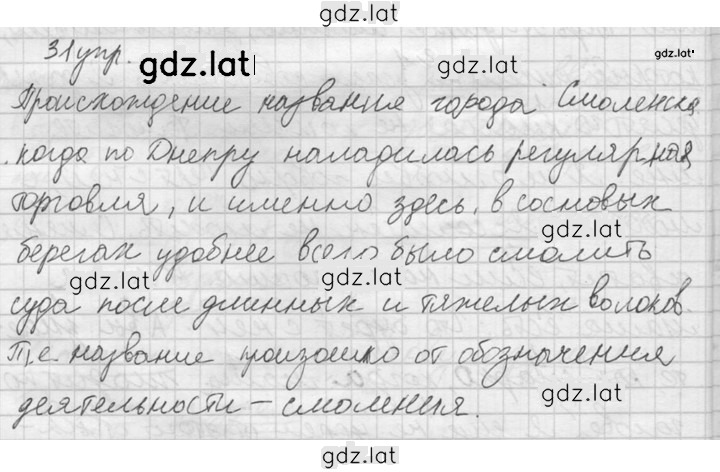 gdz.lat
31 упр.
gdz.lat gdz.lat gdz.lat
Происхождение названия города Смоленска,
когда по Днепру наладилась регулярная
торговля, и именно здесь, в сосновых
gdz.lat
берегах удобнее всего было смолить
gdz.lat
суда после длинных и тяжелых волоков.
Т.е. название произошло от обозначения
gdz.lat gdz.lat
деятельности – смоления.
gdz.lat